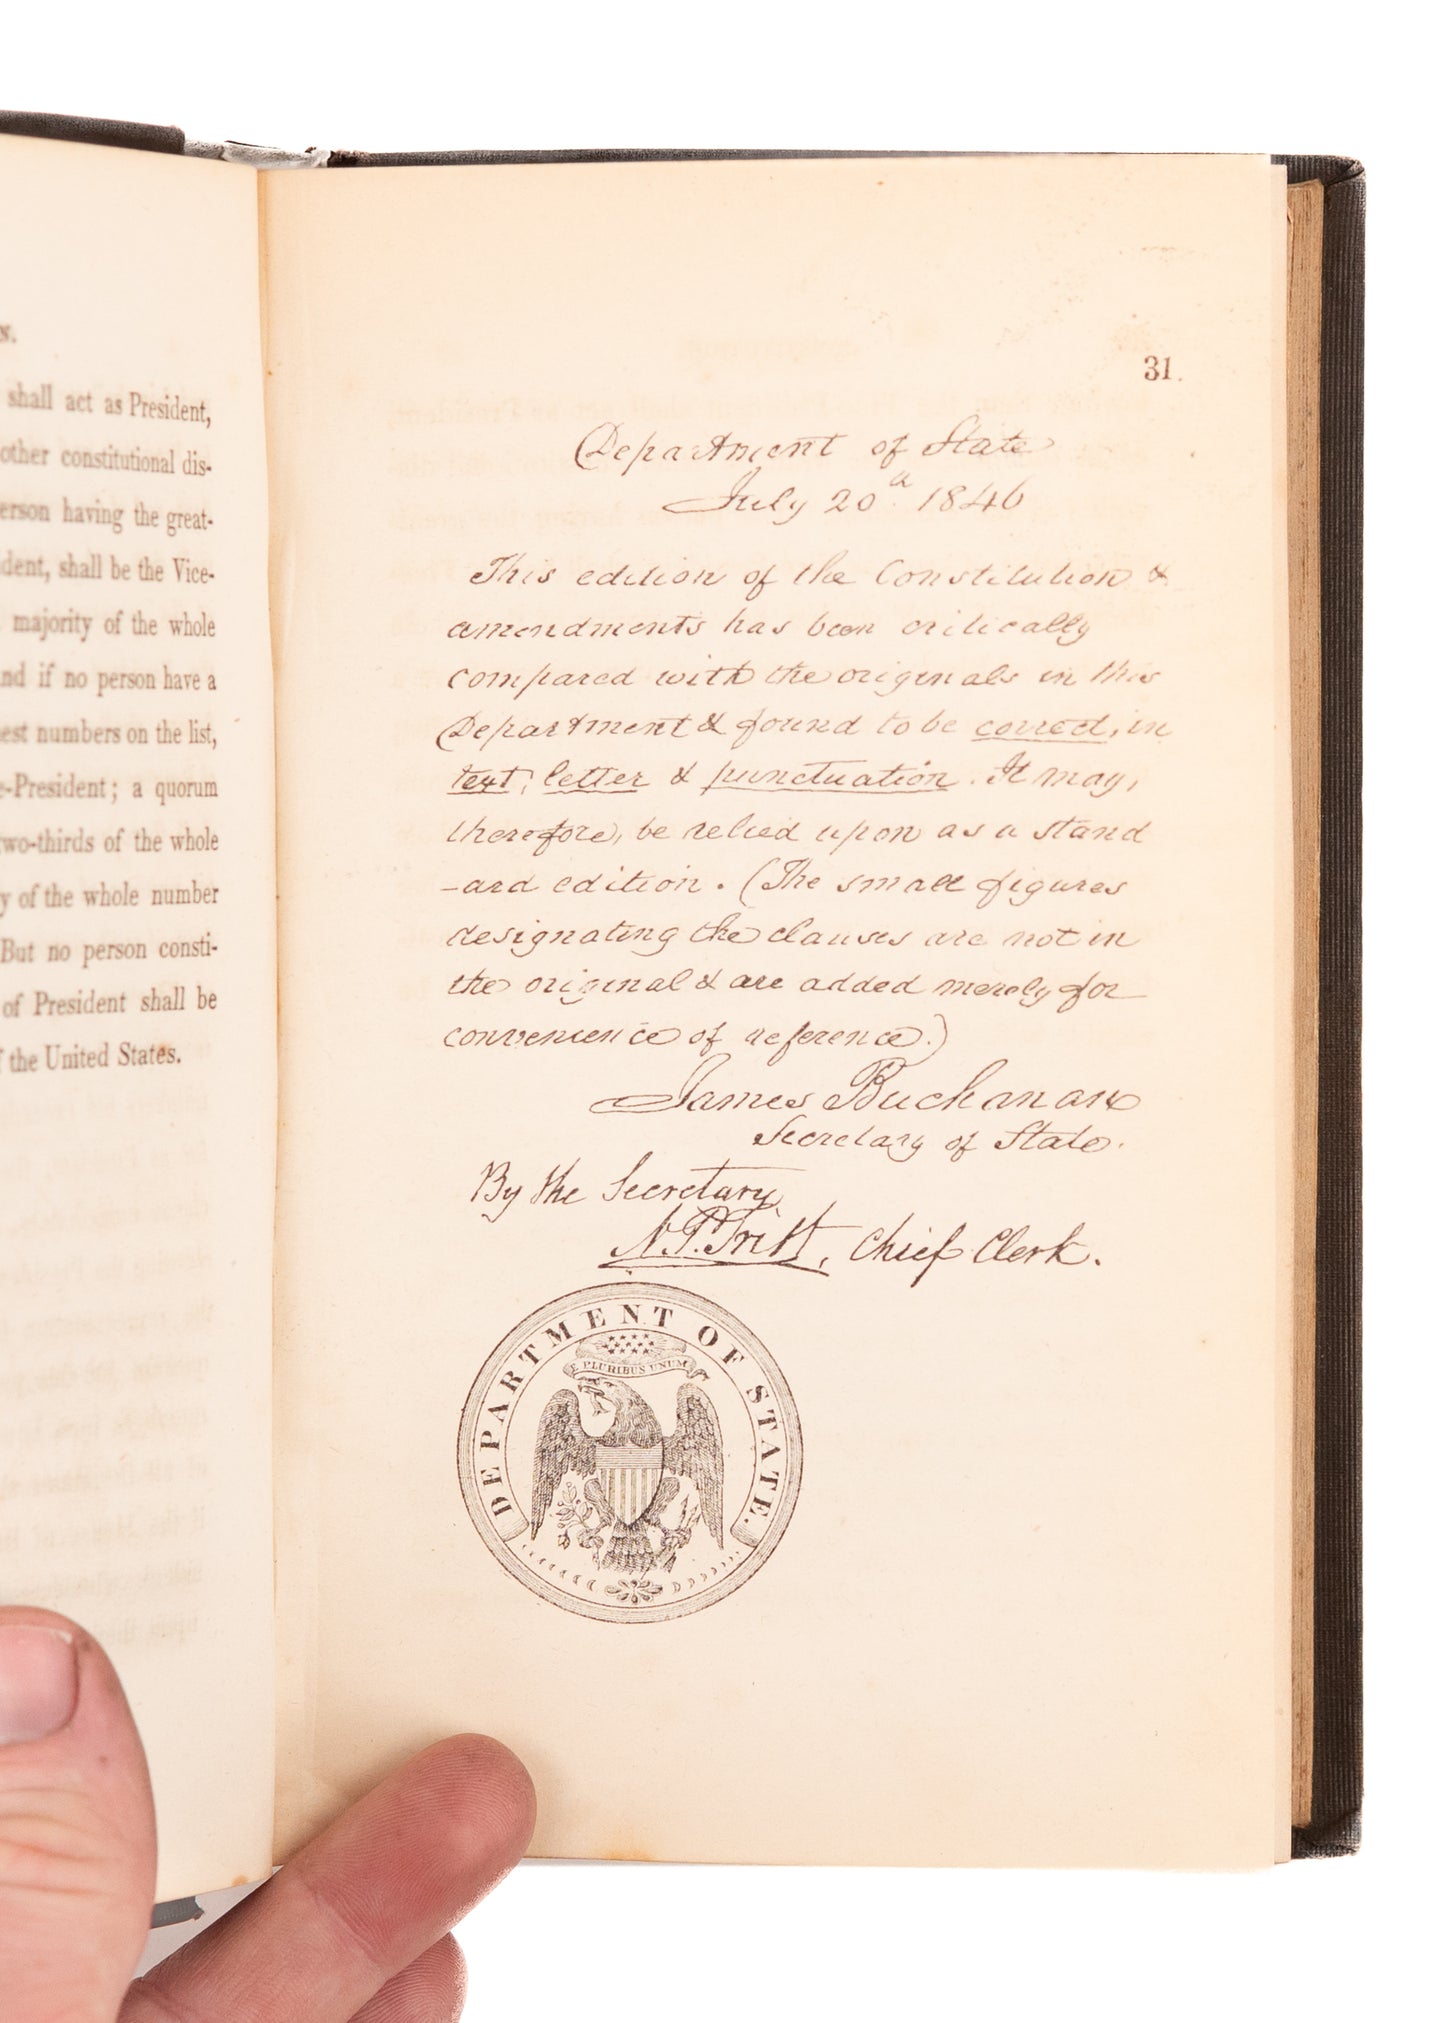 s.
shall act as President,
other constitutional dis-
erson having the great-
dent, shall be the Vice-
majority of the whole
nd if no person have a
est numbers on the list,
e-President; a quorum
two-thirds of the whole
y of the whole number
But no person consti-
of President shall be
f the United States.
31
Department of State
July 20th. 1846
This edition of the Constitution &
amendments has been critically
compared with the originals in this
Department & found to be correct, in
text, letter & punctuation. It may,
therefore, be relied upon as a stand
-ard edition. (The small figures
designating the clauses are not in
the original & are added merely for
convenience of reference.)
James Buchanan
Secretary of State.
By the Secretary,
N.P. Trist, Chief Clerk.
DEPARTMENT OF STATE.
E PLURIBUS UNUM